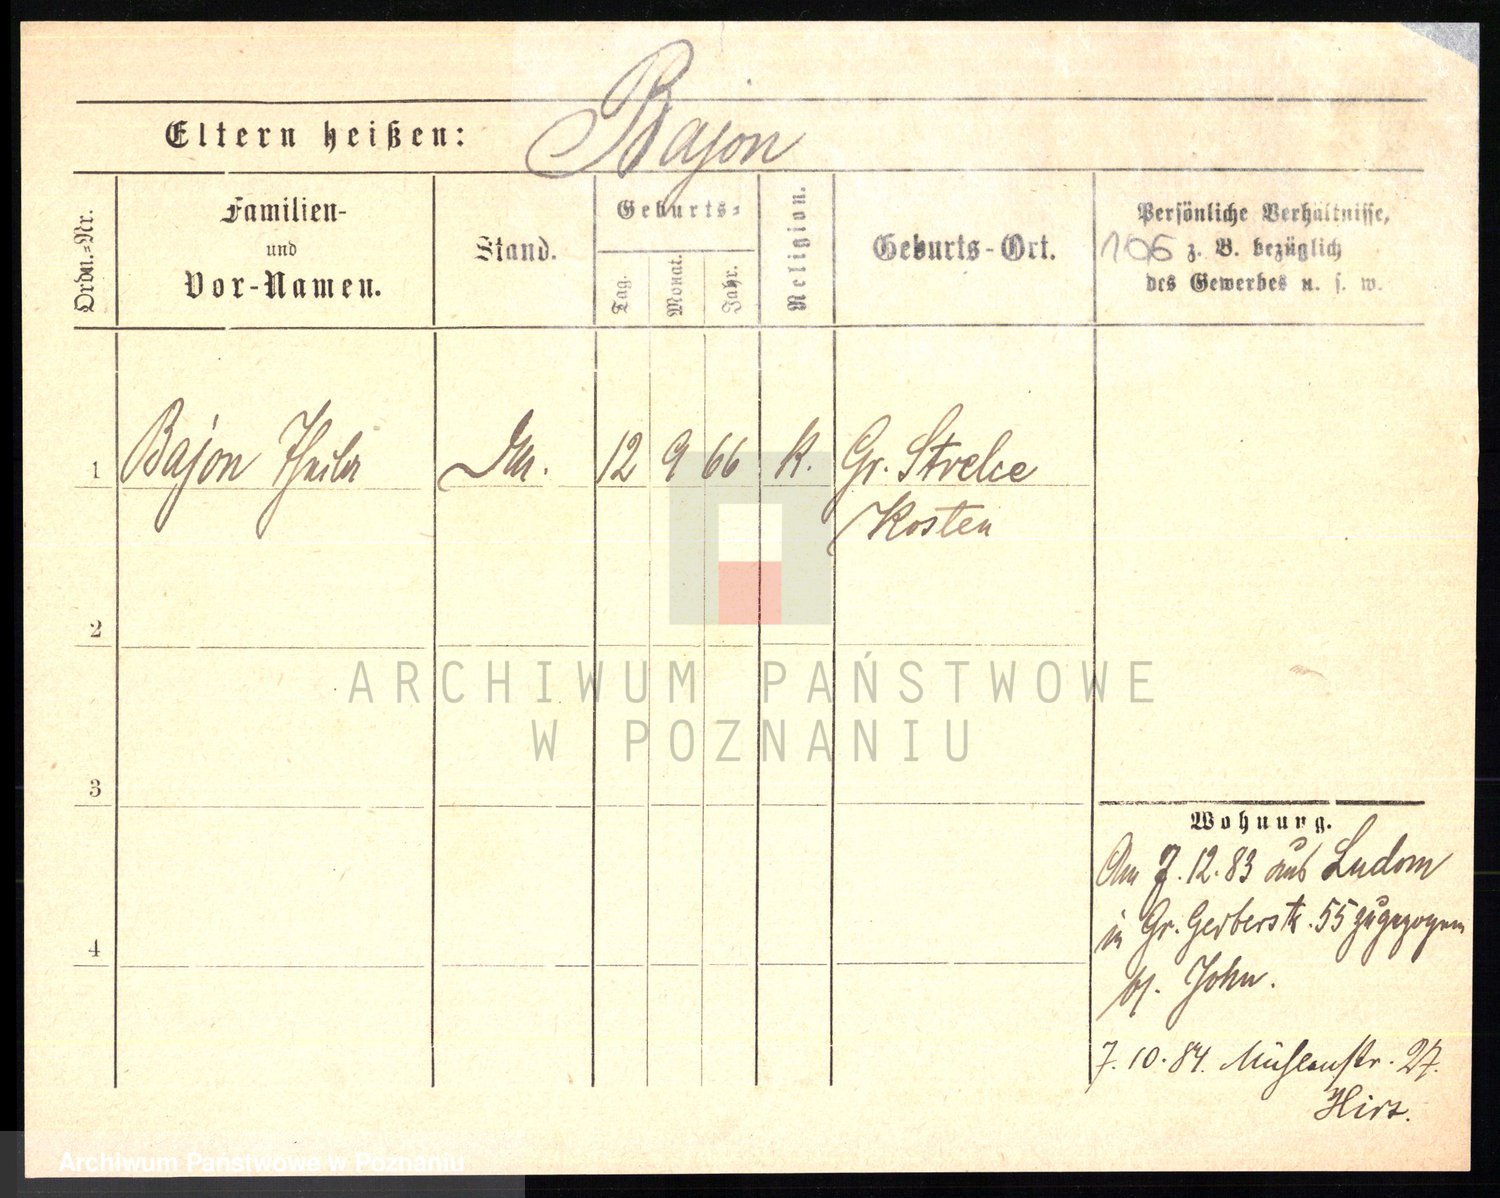 Bajon
Eltern heißen:
Ordn.-Nr.
Familien-
und
Vor-Namen.
Stand.
Geburts-
Tag.
Monat.
Jahr.
Religion.
Geburts-Ort.
Persönliche Verhältnisse,
106 z. B. bezüglich
des Gewerbes u. s. w.
1 Bajon 12 9 66 K. Gr. Strelce
Kosten
2
3
4
ARCHIWUM PAŃSTWOWE
W POZNANIU
Wohnung.
Am 7.12.83 aus Ludom
in Gr. Gerberstr. 55 zugezogen
bei John.
7.10.84. Mühlenstr. 27.
Archiwum Państwowe w Poznaniu